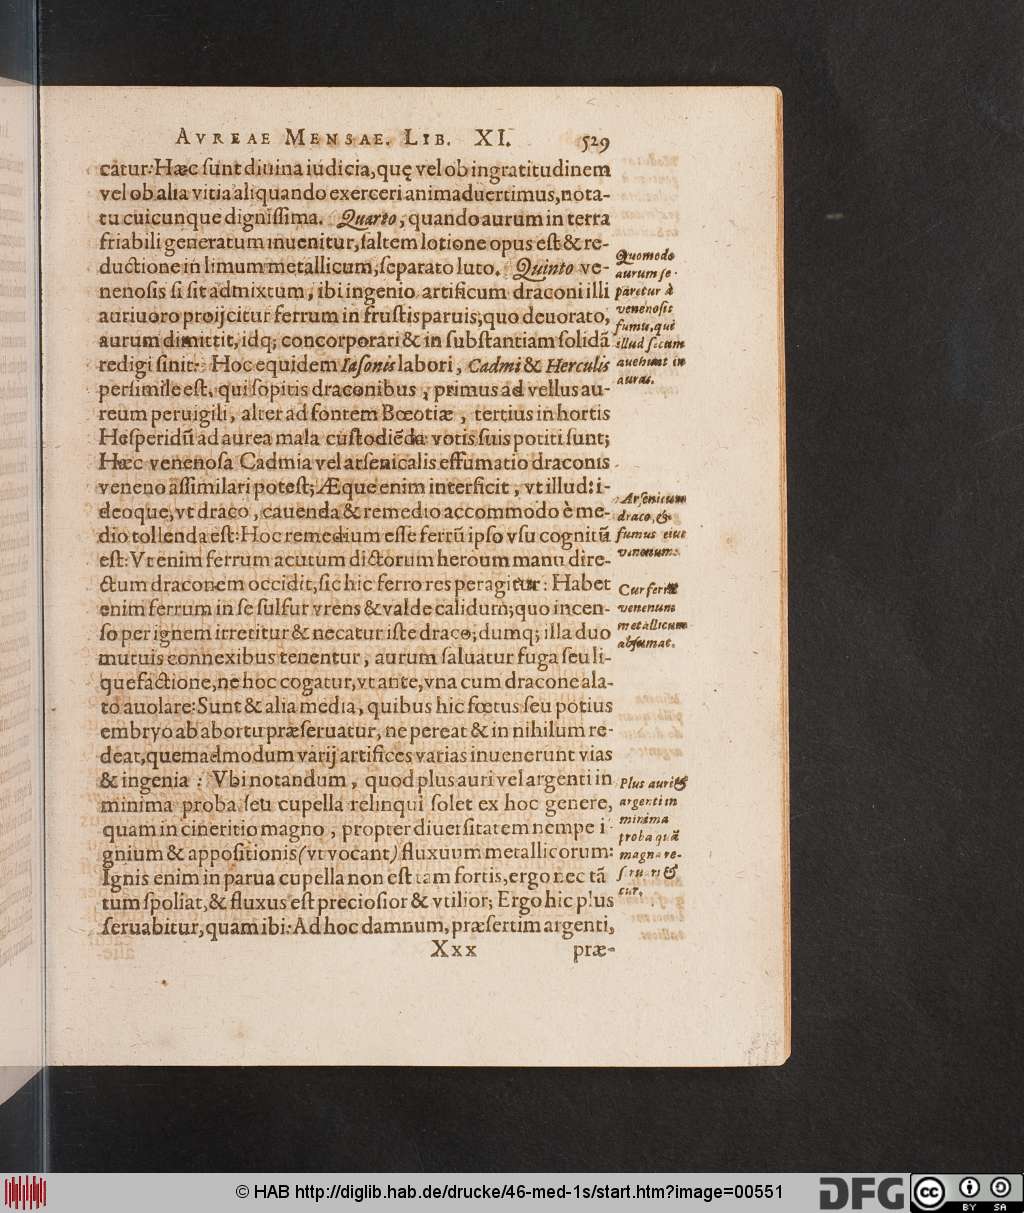 AVREAE MENSAE. LIB. XI. 529
catur: Hæc sunt diuina iudicia, quę vel ob ingratitudinem
vel ob alia vitia aliquando exerceri animaduertimus, nota-
tu cuicunque dignissima. Quarto, quando aurum in terra
friabili generatum inuenitur, saltem lotione opus est & re-
ductione in limum metallicum, separato luto. Quinto ve-
nenosis si sit admixtum, ibi ingenio artificum draconi illi
auriuoro proijcitur ferrum in frustis paruis, quo deuorato,
aurum dimittit, idq; concorporari & in substantiam solidā
redigi sinit: Hoc equidem Iasonis labori, Cadmi & Herculis
persimile est, qui sopitis draconibus, primus ad vellus au-
reum peruigili, alter ad fontem Bœotiæ, tertius in hortis
Hesperidū ad aurea mala custodiēda votis suis potiti sunt;
Hæc venenosa Cadmia vel arsenicalis effumatio draconis
veneno assimilari potest; Æque enim interficit, vt illud: i-
deoque, vt draco, cauenda & remedio accommodo è me-
dio tollenda est: Hoc remedium esse ferrū ipso vsu cognitū
est: Vt enim ferrum acutum dictorum heroum manu dire-
ctum draconem occidit, sic hic ferro res peragitur: Habet
enim ferrum in se sulfur vrens & valde calidum; quo incen-
so per ignem irretitur & necatur iste draco; dumq; illa duo
mutuis connexibus tenentur, aurum saluatur fuga seu li-
quefactione, ne hoc cogatur, vt ante, vna cum dracone ala-
to auolare: Sunt & alia media, quibus hic fœtus seu potius
embryo ab abortu præseruatur, ne pereat & in nihilum re-
deat, quemadmodum varij artifices varias inuenerunt vias
& ingenia: Vbi notandum, quod plus auri vel argenti in
minima proba seu cupella relinqui solet ex hoc genere,
quam in cineritio magno, propter diuersitatem nempe i-
gnium & appositionis (vt vocant) fluxuum metallicorum:
Ignis enim in parua cupella non est tam fortis, ergo nec tā
tum spoliat, & fluxus est preciosior & vtilior; Ergo hic plus
seruabitur, quam ibi: Ad hoc damnum, præsertim argenti,
Xxx præ-
Quomodo
aurum se-
paretur à
venenosis
fumis, qui
illud secum
auehunt in
auras.
Arsenicum
draco, &
fumus eius
venenum.
Cur ferrū
venenum
metallicum
absumat.
Plus auri &
argenti in
minima
proba quā
magna re-
&
tur.
© HAB http://diglib.hab.de/drucke/46-med-1s/start.htm?image=00551
DFG
cc
BY SA